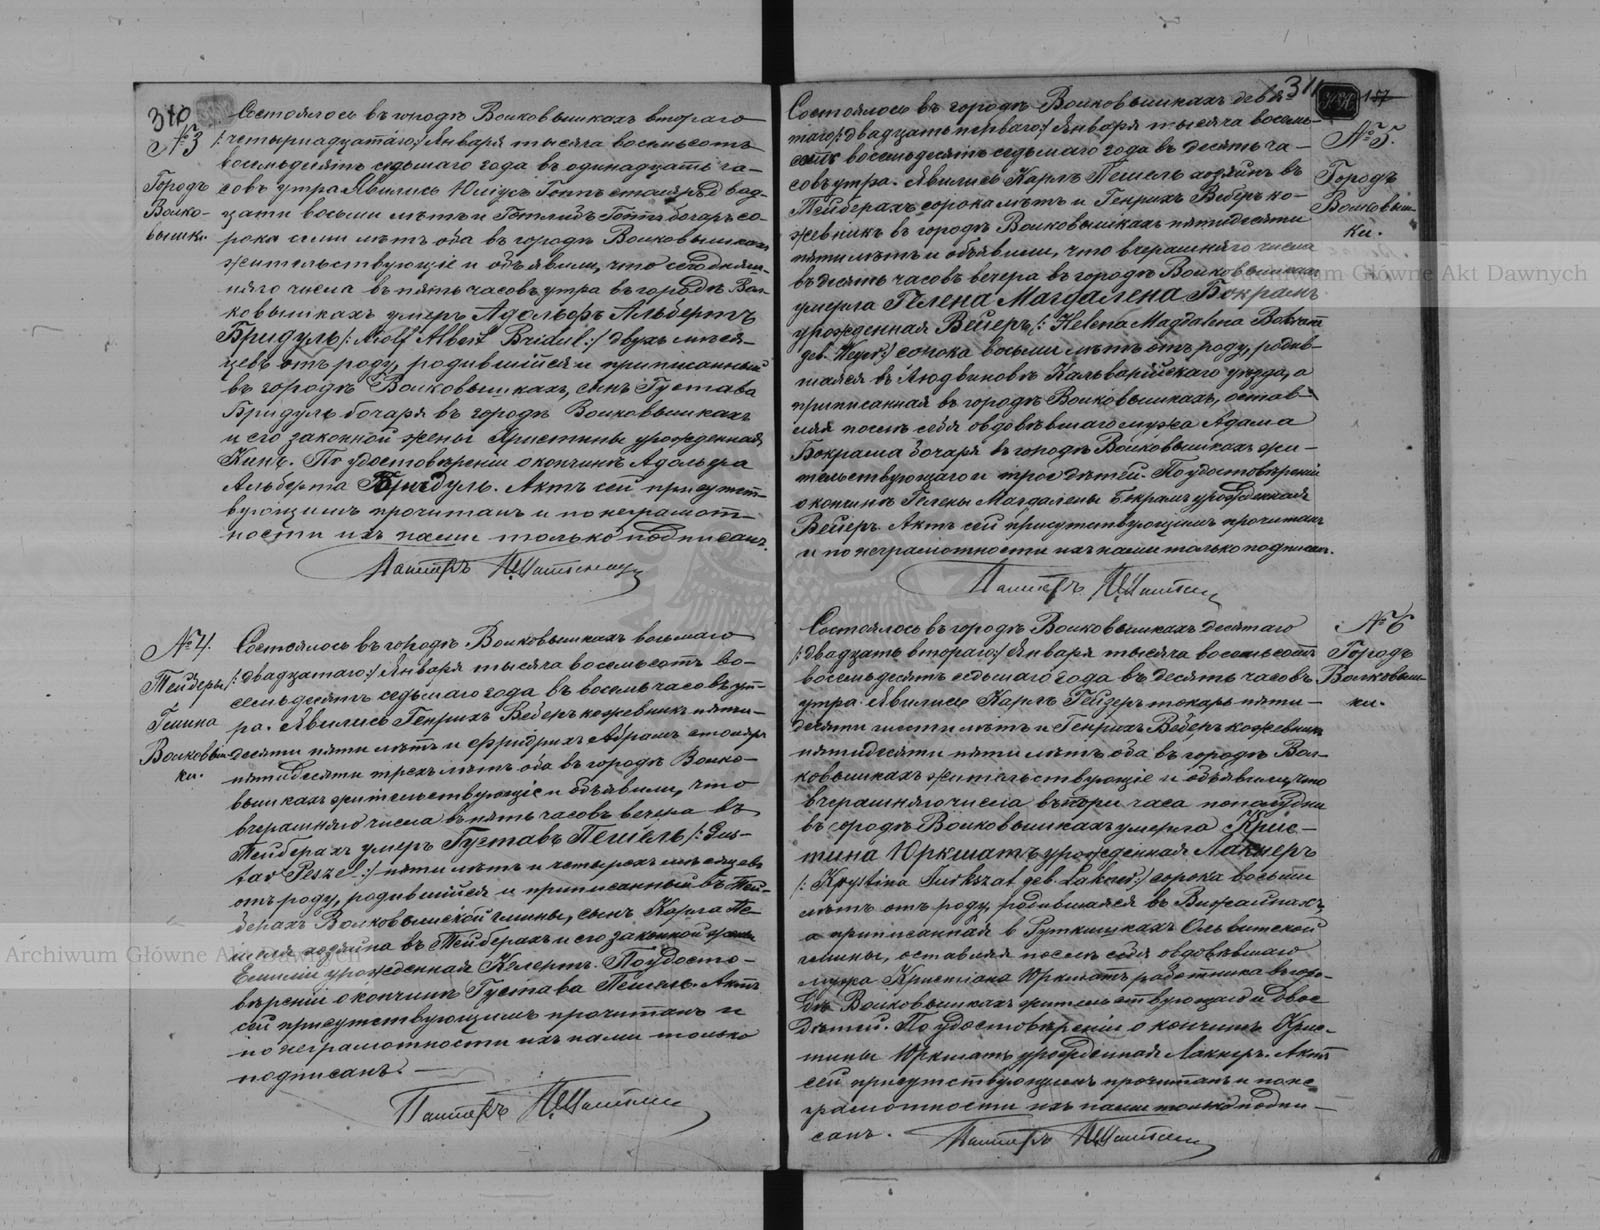 310
№ 3
Городъ
Волко-
вышки.
Состоялось въ городѣ Волковышкахъ втораго
/:четырнадцатаго:/ Января тысяча восемьсотъ
восемьдесятъ седьмаго года въ одинадцать ча-
совъ утра. Явились Юлiусъ Гоппъ столяръ двад-
цати восьми лѣтъ и Готлибъ Готъ бочаръ со-
рока семи лѣтъ оба въ городѣ Волковышкахъ
жительствующiе и объявили, что сегодняш-
няго числа въ пять часовъ утра въ городѣ Вол-
ковышкахъ умеръ Адольфъ Альбертъ
Бридуль /: Adolf Albert Bridul :/ двухъ мѣся-
цевъ отъ роду, родившiйся и приписанный
въ городѣ Волковышкахъ, сынъ Густава
Бридуль бочаря въ городѣ Волковышкахъ
и его законной жены Христины урожденная
Кинъ. По удостовѣренiи о кончинѣ Адольфа
Альберта Бридуль. Актъ сей присутст-
вующимъ прочитанъ и по неграмот-
ности ихъ нами только подписанъ.
Пасторъ
№ 4.
Тейберы
Гмина
Волковыш-
ки.
Состоялось въ городѣ Волковышкахъ восьмаго
/:двадцатаго:/ Января тысяча восемьсотъ во-
семьдесятъ седьмаго года въ восемь часовъ ут-
ра. Явились Генрихъ Веберъ кожевникъ пяти-
десяти пяти лѣтъ и Фридрихъ Абрамъ столяръ
пятидесяти трехъ лѣтъ оба въ городѣ Волко-
вышкахъ жительствующiе и объявили, что
вчерашняго числа въ пять часовъ вечера въ
Тейберахъ умеръ Густавъ Пешель /: Gus-
tav Peszel :/ пяти лѣтъ и четырехъ мѣсяцевъ
отъ роду, родившiйся и приписанный въ Тей-
берахъ Волковышской гмины, сынъ Карла Пе-
шеля хозяина въ Тейберахъ и его законной жены
Емилiи урожденная Кэлертъ. По удосто-
вѣренiи о кончинѣ Густава Пешель. Актъ
сей присутствующимъ прочитанъ и
по неграмотности ихъ нами только
подписанъ. —
Пасторъ
311
157
№ 5.
Городъ
Волковыш-
ки.
Состоялось въ городѣ Волковышкахъ девя-
таго /:двадцать перваго:/ Января тысяча восемь-
сотъ восемьдесятъ седьмаго года въ десять ча-
совъ утра. Явились Карлъ Пешель хозяинъ въ
Тейберахъ сорока лѣтъ и Генрихъ Веберъ ко-
жевникъ въ городѣ Волковышкахъ пятидесяти
пяти лѣтъ и объявили, что вчерашняго числа
въ десять часовъ вечера въ городѣ Волковышкахъ
умерла Гелена Магдалена Бокрамъ
урожденная Вейеръ /: Helena Magdalena Bokram
geb. Weyer :/ сорока восьми лѣтъ отъ роду, родив-
шаяся въ Людвиновѣ Кальварiйскаго уѣзда, а
приписанная въ городѣ Волковышкахъ, остав-
ляя послѣ себя овдовѣвшаго мужа Адама
Бокрама бочаря въ городѣ Волковышкахъ жи-
тельствующаго и трое дѣтей. По удостовѣренiи
о кончинѣ Гелены Магдалены Бокрамъ урожденная
Вейеръ. Актъ сей присутствующимъ прочитанъ
и по неграмотности ихъ нами только подписанъ.
Пасторъ
№ 6
Городъ
Волковыш-
ки.
Состоялось въ городѣ Волковышкахъ десятаго
/:двадцать втораго:/ Января тысяча восемьсотъ
восемьдесятъ седьмаго года въ десять часовъ
утра. Явились Карлъ Гейзеръ токарь пяти-
десяти шести лѣтъ и Генрихъ Веберъ кожевникъ
пятидесяти пяти лѣтъ оба въ городѣ Вол-
ковышкахъ жительствующiе и объявили, что
вчерашняго числа въ три часа пополудни
въ городѣ Волковышкахъ умерла Крис-
тина Юркшатъ урожденная Лакнеръ
/: Krystina Jurkszat geb. Lakner :/ сорока восьми
лѣтъ отъ роду, родившаяся въ Вижайнахъ,
а приписанная въ Руткишкахъ Ольвитской
гмины, оставляя послѣ себя овдовѣвшаго
мужа Кристiана Юркшатъ работника въ горо-
дѣ Волковышкахъ жительствующаго и двое
дѣтей. По удостовѣренiи о кончинѣ Крис-
тины Юркшатъ урожденная Лакнеръ. Актъ
сей присутствующимъ прочитанъ и по не-
грамотности ихъ нами только подпи-
санъ.
Пасторъ
Archiwum Główne Akt Dawnych
Archiwum Główne Akt Dawnych